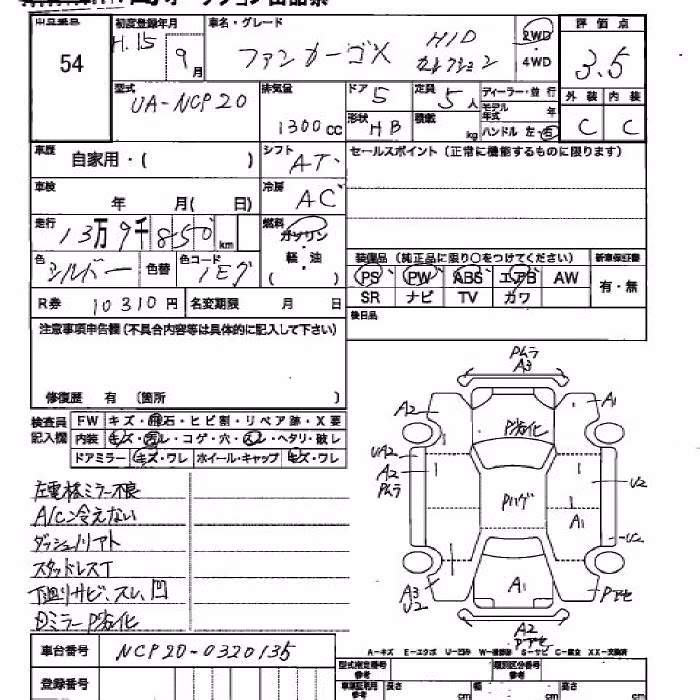 出品番号
54
初度登録年月
H.15 9月
車名・グレード
ファンカーゴX HID セレクション
2WD
・
4WD
評価点
3.5
型式
UA-NCP20
排気量
1300cc
ドア 5
定員 5人
形状 HB
積載 kg
ディーラー・並行
モデル年式 年
ハンドル 左・右
外装 内装
C C
車歴
自家用・( )
シフト
AT
セールスポイント(正常に機能するものに限ります)
車検
年 月( 日)
冷房
AC
走行
13万9千850km
燃料
ガソリン・軽・油
( )
色
シルバー
色替
色コード
1E7
装備品(純正品に限り○をつけてください)
新車保証書
PS PW ABS エアB AW
SR ナビ TV カワ
有・無
R券 10310円
名変期限 月 日
後日品
注意事項申告欄(不具合内容等は具体的に記入して下さい)
修復歴 有 〔箇所 〕
検査員記入欄
FW キズ・飛石・ヒビ割・リペア跡・X要
内装 キズ・汚レ・コゲ・穴・スレ・ヘタリ・破レ
ドアミラー キズ・ワレ ホイール・キャップ キズ・ワレ
左電格ミラー不良
A/C冷えない
ダッシュノリアト
スタッドレスT
下廻りサビ、スレ、凹
Rミラー P劣化
Pムラ
A3
A2
A1
P劣化
UA2
A2
Pムラ
Pハゲ
U2
A1
U2
A3
U2
A1
Pアセ
A2
Pアセ
A-キズ E-エクボ U-凹ミ W-補修跡 S-サビ C-腐食 XX-交換済
車台番号
NCP20-0320135
登録番号
型式指定番号
参考
類別区分番号
参考
車検証利用
参考
長さ cm
幅 cm
高さ cm